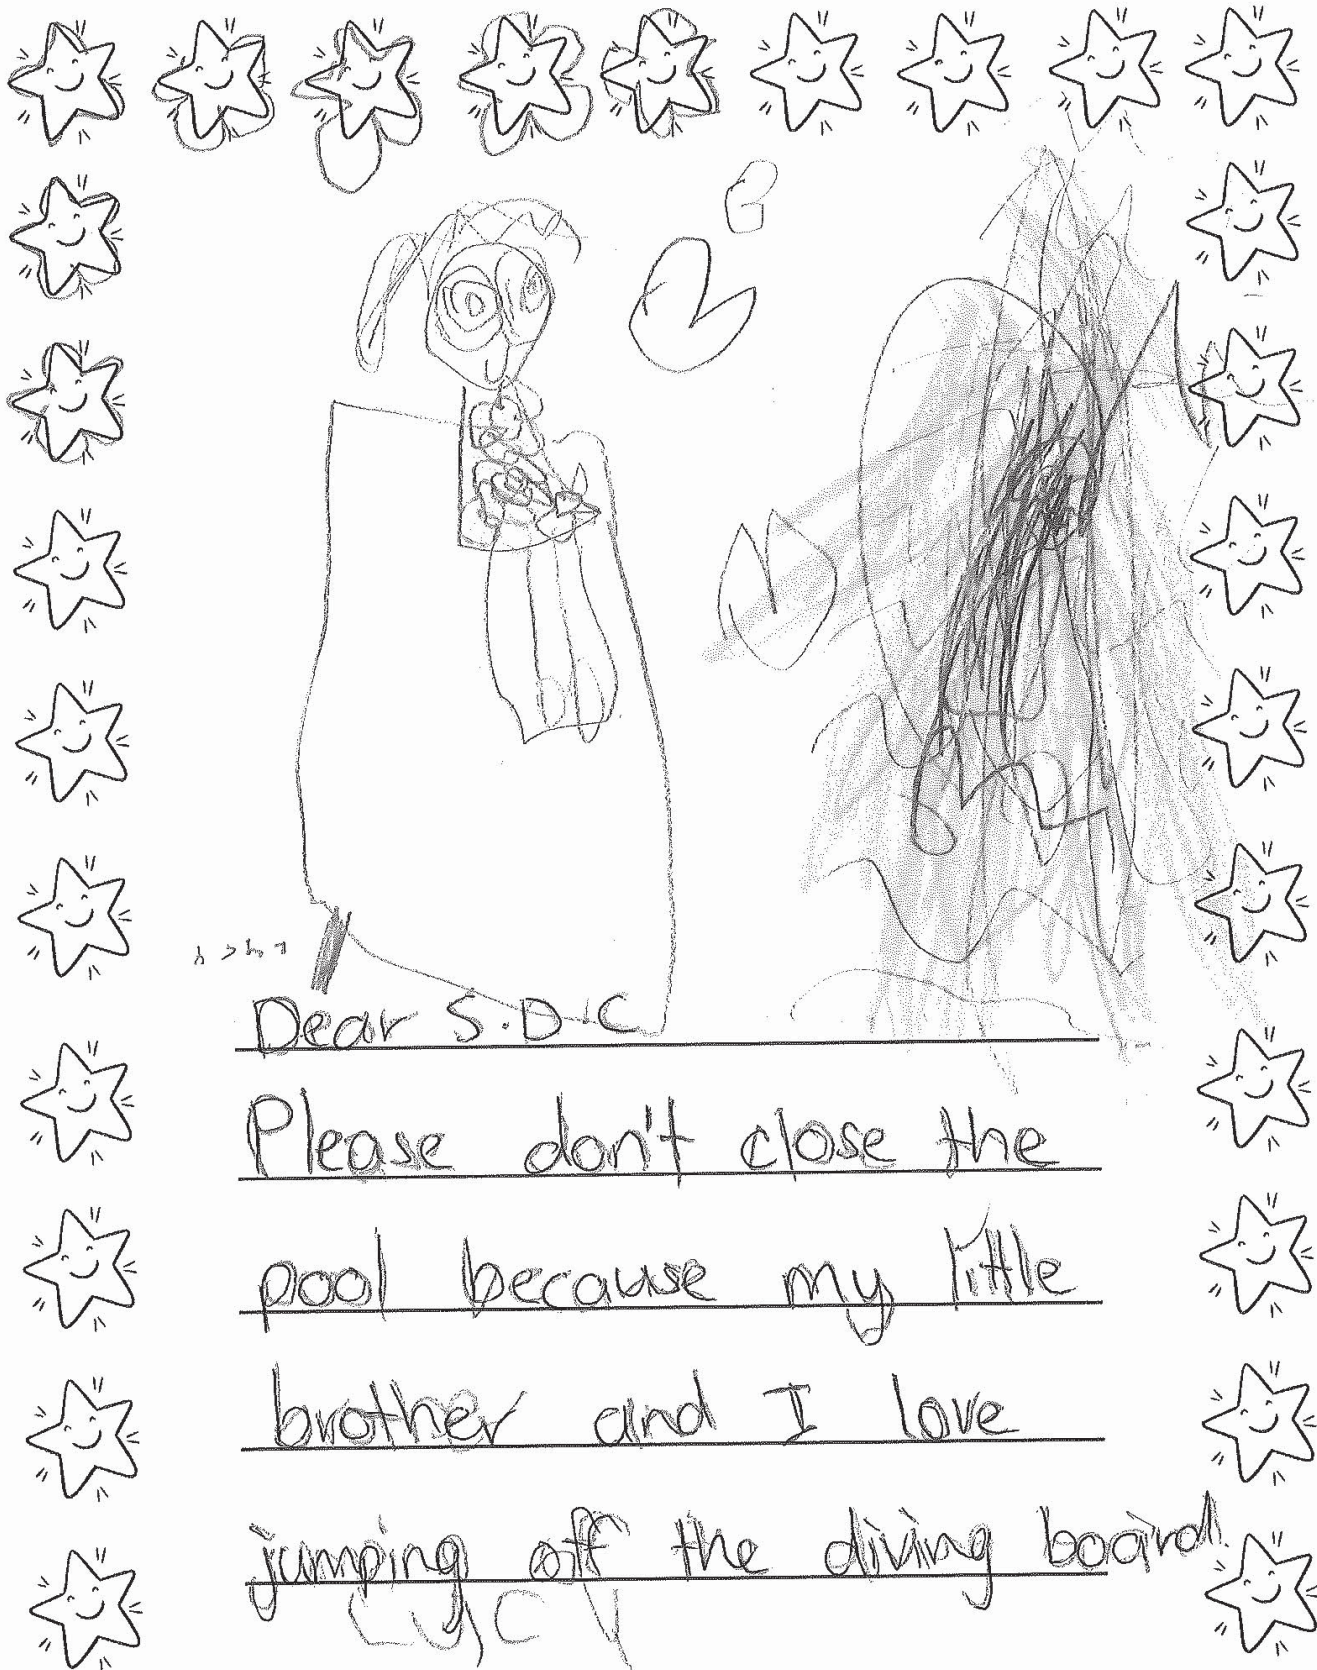 Dear S.D.C
Please don't close the
pool because my little
brother and I love
jumping off the diving board.